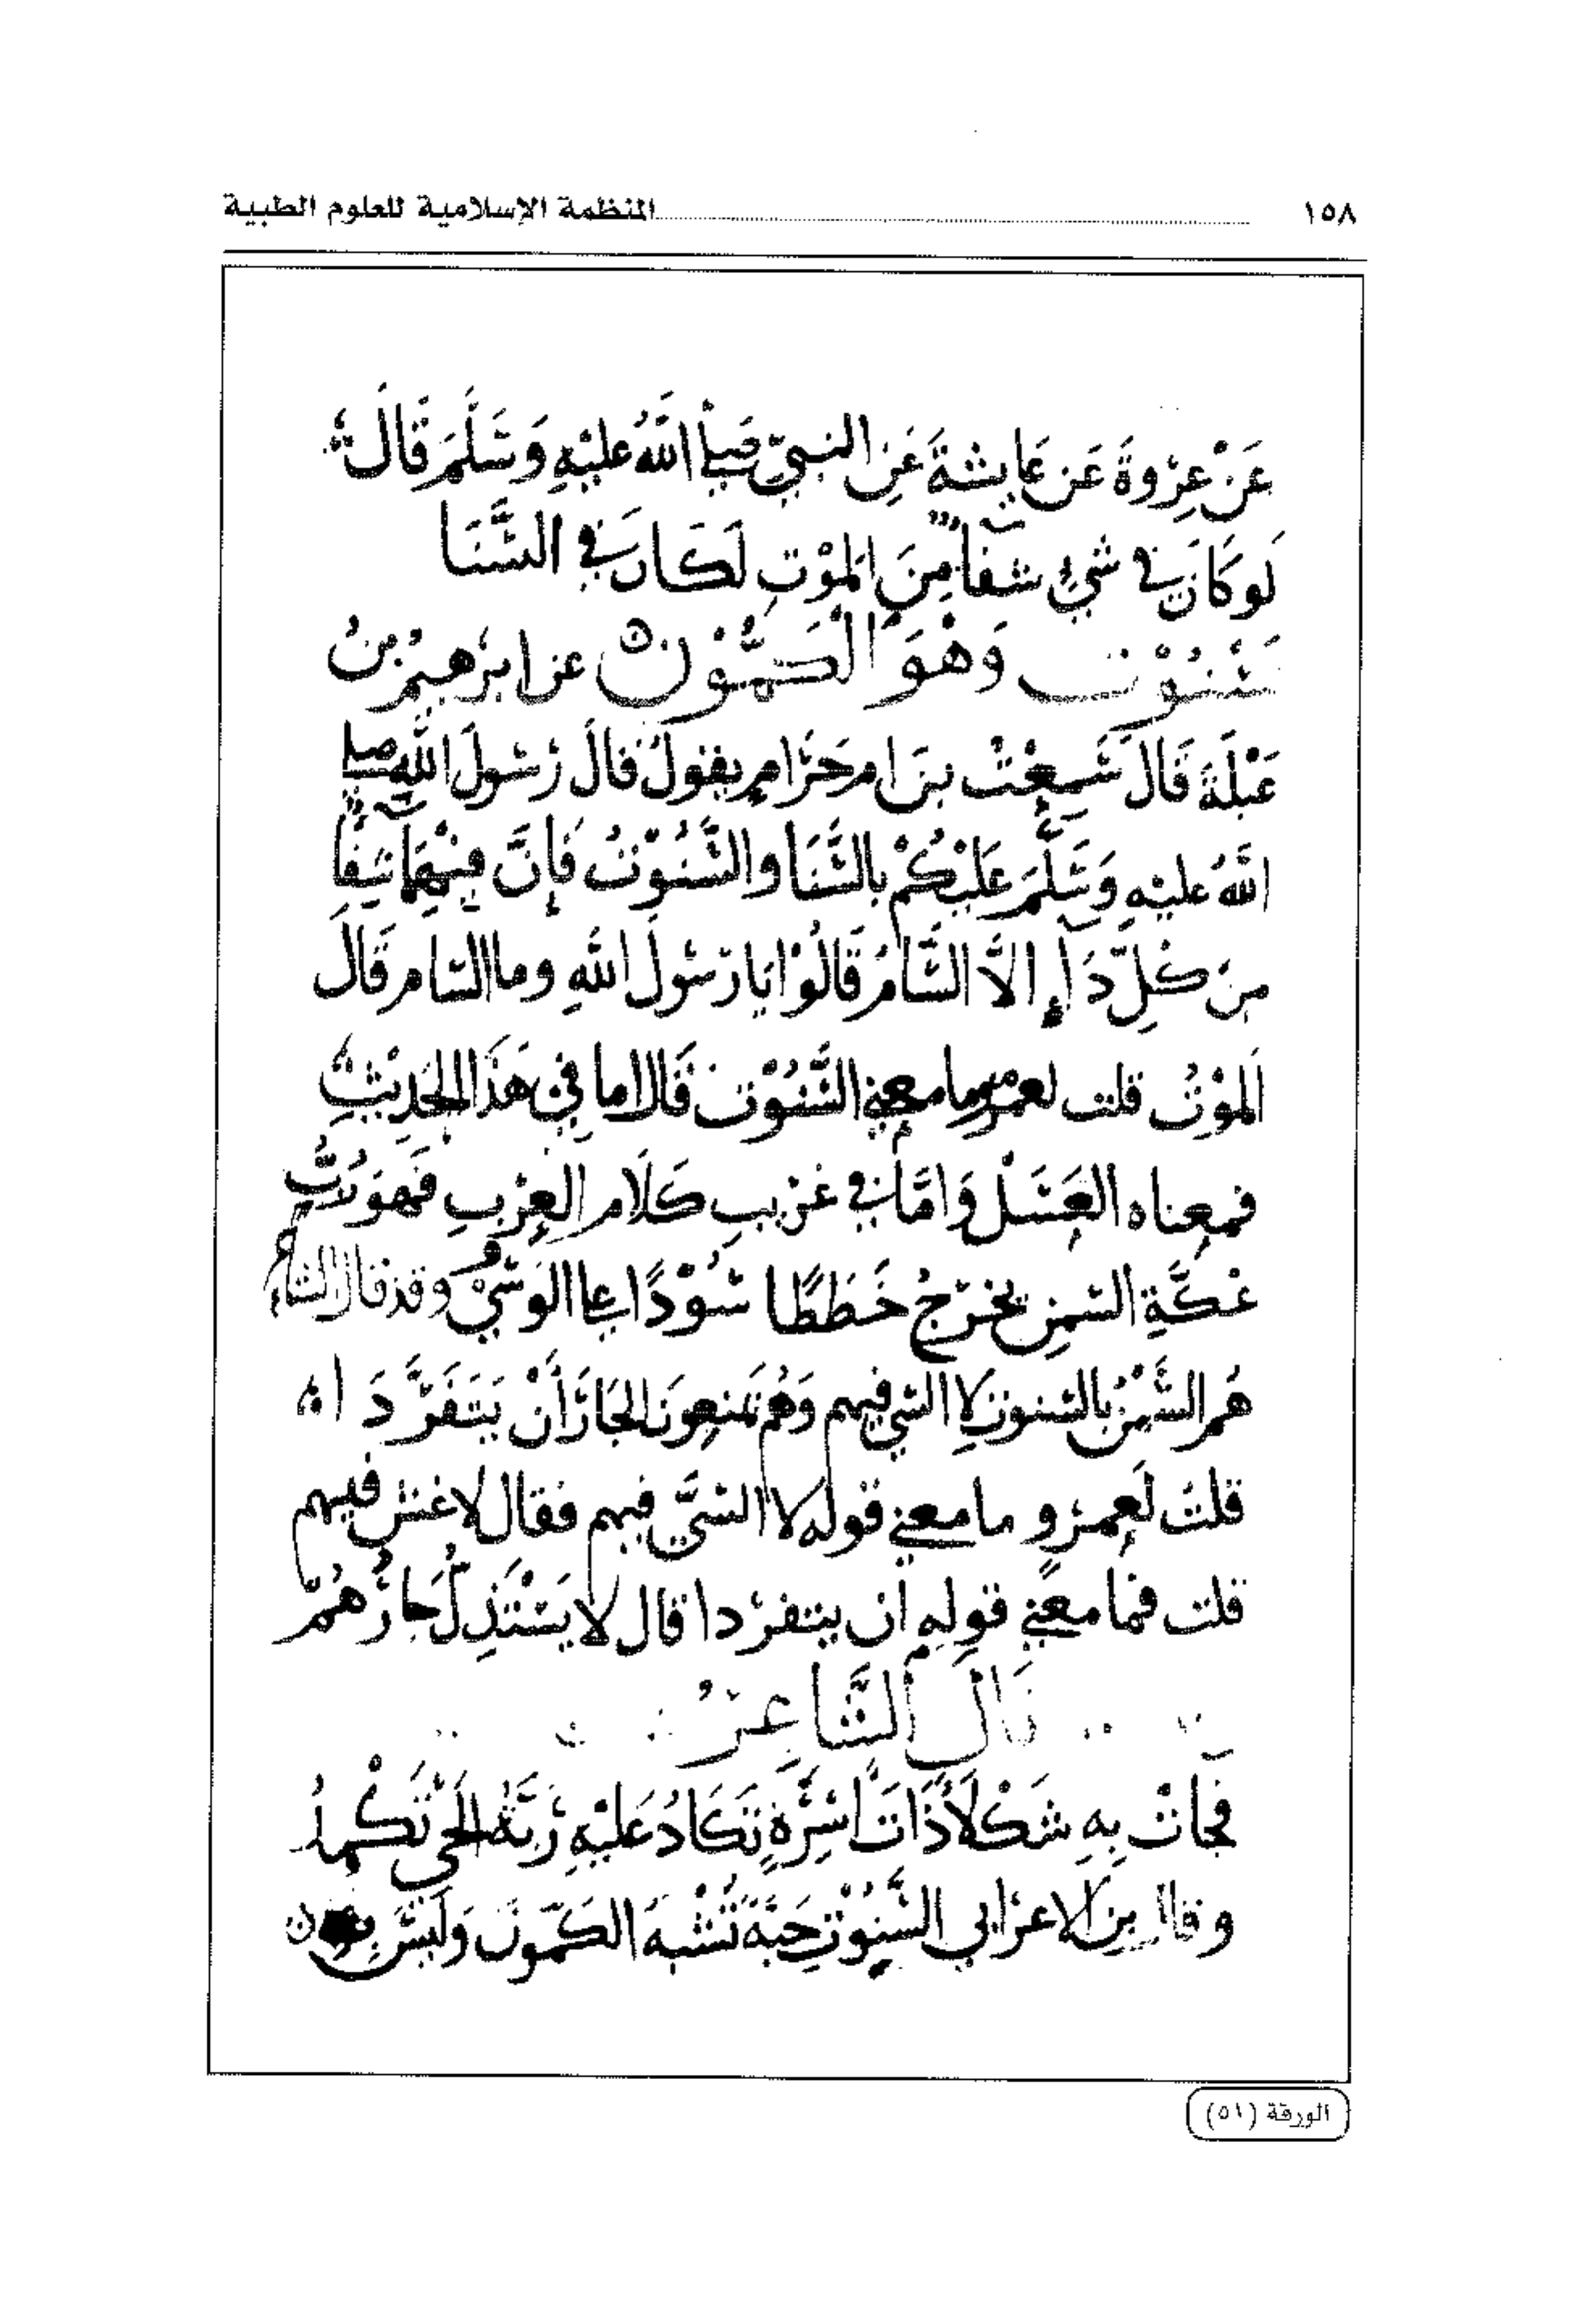 ١٥٨ المنظمة الإسلامية للعلوم الطبية
عَنْ عِرْوةَ عَن عَايشةَ عَنِ النبيّ صَلى اللهُ عليْهِ وَسَلَّمَ قَالَ
لَو كَانَ في شيءٍ شفآءٌ مِنَ المَوْتِ لَكَانَ في السَّنَا
سَنُوْت وَهْوَ الكَمُّوْن عن ابرَهيمُ بنُ
عَبْلَةَ قَالَ سَمِعْتُ بنَ ام حَرَامٍ يقولُ قالَ رَسُولَ اللهِ صلى
اللهُ عليْهِ وَسَلَّمَ عَلَيْكُمْ بالسَّنَا والسَّنُوْتُ فَإنَّ فيْهِمَا شِفآءً
مِنَ كُلِّ دَآءٍ الاَّ السَّامُ قَالُوْا يَا رَسُولَ اللهِ وما السَّام قَالَ
المَوْتُ قلت لعمْرٍو ما معني السَّنُوْت قَالَ اما في هَذَا الحَدِيْثِ
فمعناه العَسَلْ وَامَّا في غرْيبِ كَلَام العِرْبِ فَهوَ رُبُّ
عْكَّةِ السَّمنِ يخرُجُ خَطَطًا سُوْدًا علي الوَشيْ وقد قال الشاعر
هُم السَّمْنُ بالسَّنوتِ لا السّي فيهم وَهُم يَمنعونَ الجَارَ أَنْ يَتَفَرَّدَا
قلتُ لَعِمرْو ما معني قوله لا السّيَّ فيهم فقال لا غش فيهم
قلت فما معني قولهِ ان يتفرّدا قال لا يَسْتَذِلُّ جَارُهُمْ
قَالَ الشَّاعِرُ
فجآتْ بِهِ شَكْلاً ذَاتَ اسِرَّةٍ تَكَادُ عَلَيْهِ رَبَّةُ الحَي تَكْمدُ
وقال بن الاعرَابي السَّنِوْت حَبَّة تُشْبهَ الكَمّونَ وَلَيْسَ
الورقة (٥١)